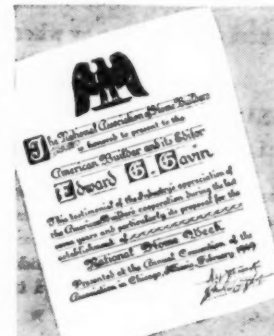 The National Association of Home Builders
is honored to present to the
American Builder and its Editor
Edward G. Gavin
This testimonial of the Industry's appreciation of
the American Builder's cooperation during the last
years and particularly its proposal for the
establishment of
National Home Week
Presented at the Annual Convention of the
Association in Chicago, Illinois, February 1949